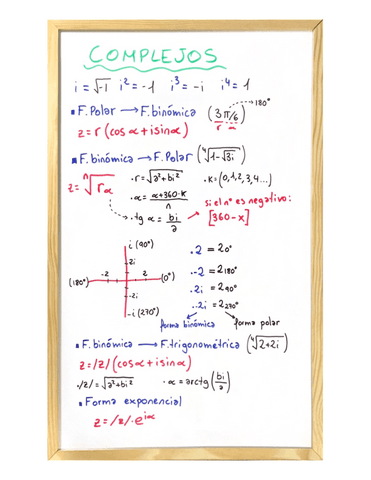 COMPLEJOS
i = √-1 i² = -1 i³ = -i i⁴ = 1
▪ F. Polar → F. binómica (3π/6) → 180°
r α
z = r (cos α + i sin α)
▪ F. binómica → F. Polar (⁴√1-√3i)
z = ⁿ√rα · r = √a²+bi² · K = (0,1,2,3,4...)
· α = α+360·K/n
· tg α = bi/a
si el nº es negativo:
[360-x]
i (90°)
2i
(180°) -2 2 (0°)
-2i
-i (270°)
· 2 = 2₀°
· -2 = 2₁₈₀°
· 2i = 2₉₀°
· -2i = 2₂₇₀°
forma binómica forma polar
▪ F. binómica → F. trigonométrica (⁴√2+2i)
z = /z/ (cos α + i sin α)
· /z/ = √a²+bi² · α = arctg (bi/a)
▪ Forma exponencial
z = /z/ · e^iα